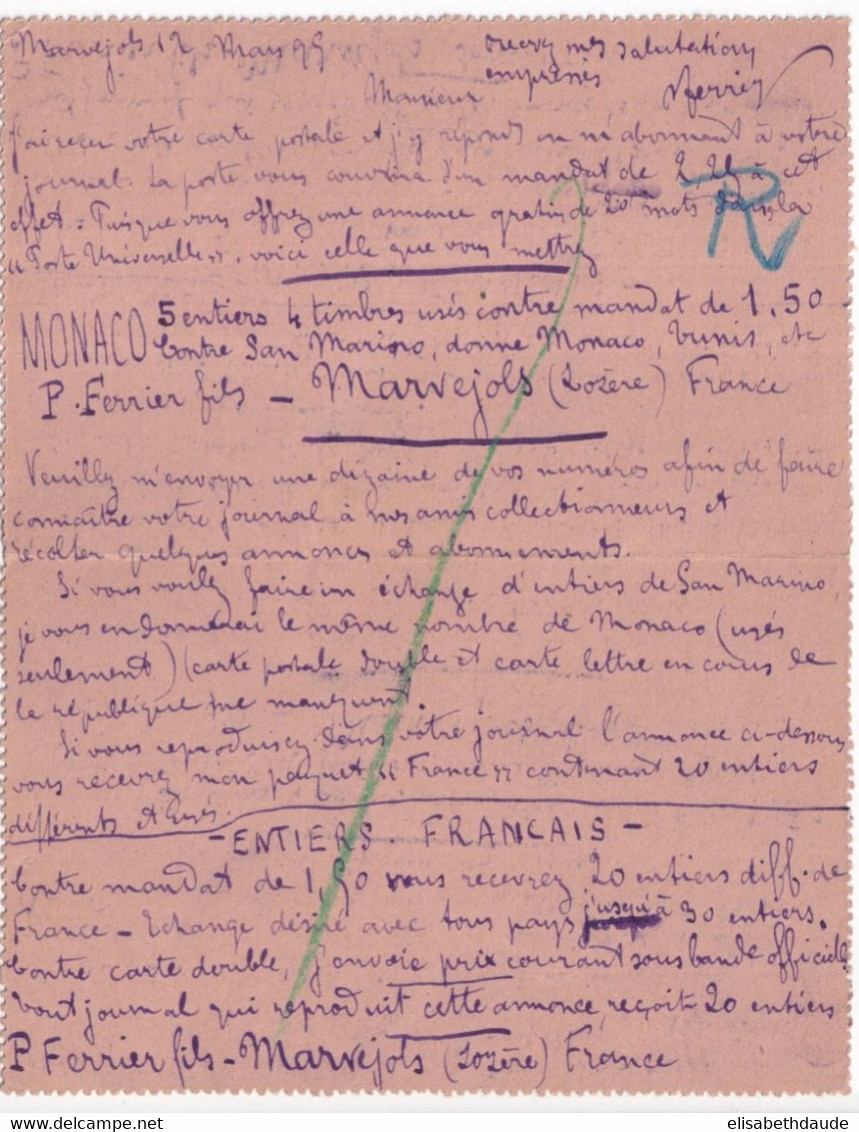 Marvejols 12 Mars 95
recevez mes salutations
empressées
Ferrier
Monsieur
J'ai reçu votre carte postale et j'y réponds en m'abonnant à votre
journal. La poste vous couvrira d'un mandat de 2,25 à cet
effet. Puisque vous offrez une annonce gratis de 20 mots dans la
"Poste Universelle", voici celle que vous mettrez
R
MONACO 5 entiers 4 timbres usés contre mandat de 1.50
Contre San Marino, donne Monaco, Tunis, etc
P. Ferrier fils - Marvejols (Lozère) France
Veuillez m'envoyer une dizaine de vos numéros afin de faire
connaître votre journal à mes amis collectionneurs et
récolter quelques annonces et abonnements.
Si vous voulez faire un échange d'entiers de San Marino,
je vous en donnerai le même nombre de Monaco (usés
seulement) (carte postale double et carte lettre en cours de
la république me manquent)
Si vous reproduisez dans votre journal l'annonce ci-dessous
vous recevrez mon paquet "France" contenant 20 entiers
différents et usés.
- ENTIERS FRANCAIS -
Contre mandat de 1,50 vous recevrez 20 entiers diff. de
France - Echange désiré avec tous pays jusqu'à 30 entiers.
Contre carte double, j'envoie prix courant sous bande officielle
Tout journal qui reproduit cette annonce, reçoit 20 entiers
P Ferrier fils - Marvejols (Lozère) France
elisabethdaude